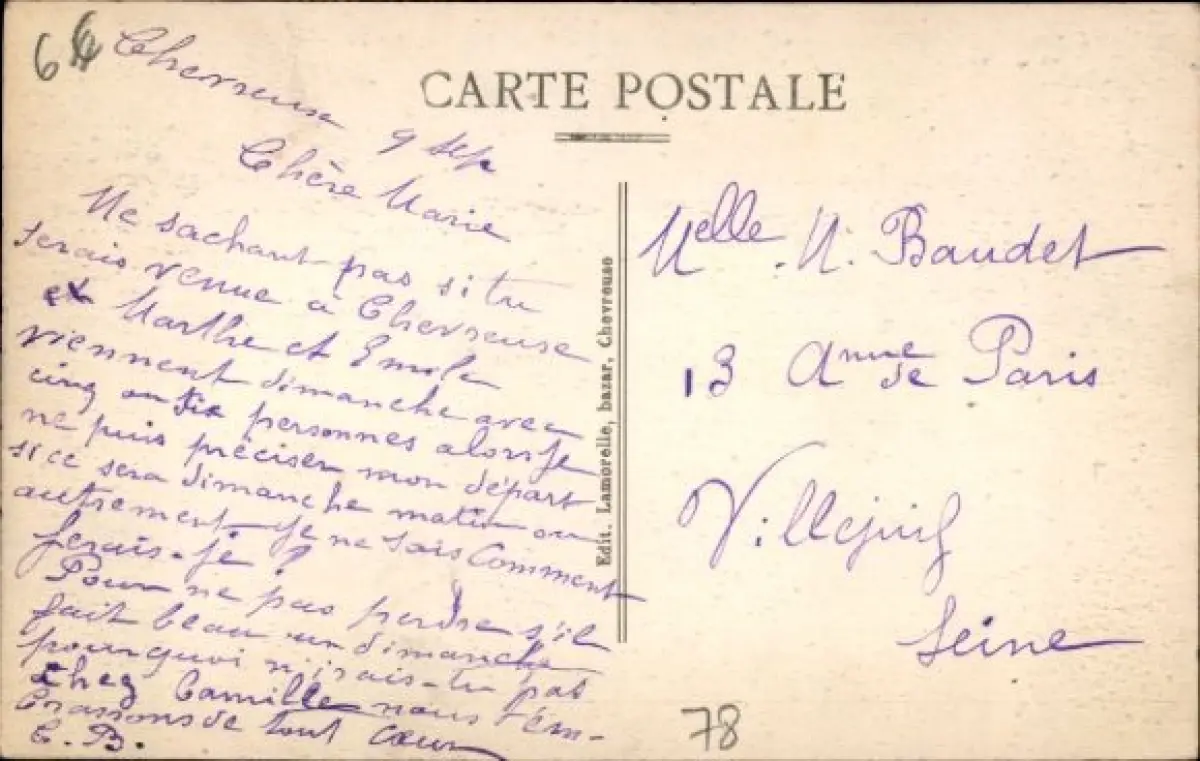 64
Chevreuse
9 sep
CARTE POSTALE
Chère Marie
Ne sachant pas si tu
serais venue à Chevreuse
et Marthe et Emile
viennent dimanche avec
cinq ou six personnes alors je
ne puis préciser mon départ
si ce sera dimanche matin ou
autrement je ne sais Comment
ferais-je ?
Pour ne pas perdre s'il
fait beau un dimanche
pourquoi n'irais-tu pas
Chez Camille nous t'em-
brassons de tout Cœur
C. B.
Edit. Lamorelle, bazar, Chevreuse
Melle M. Baudet
13 Anne de Paris
Villejuif
Seine
78